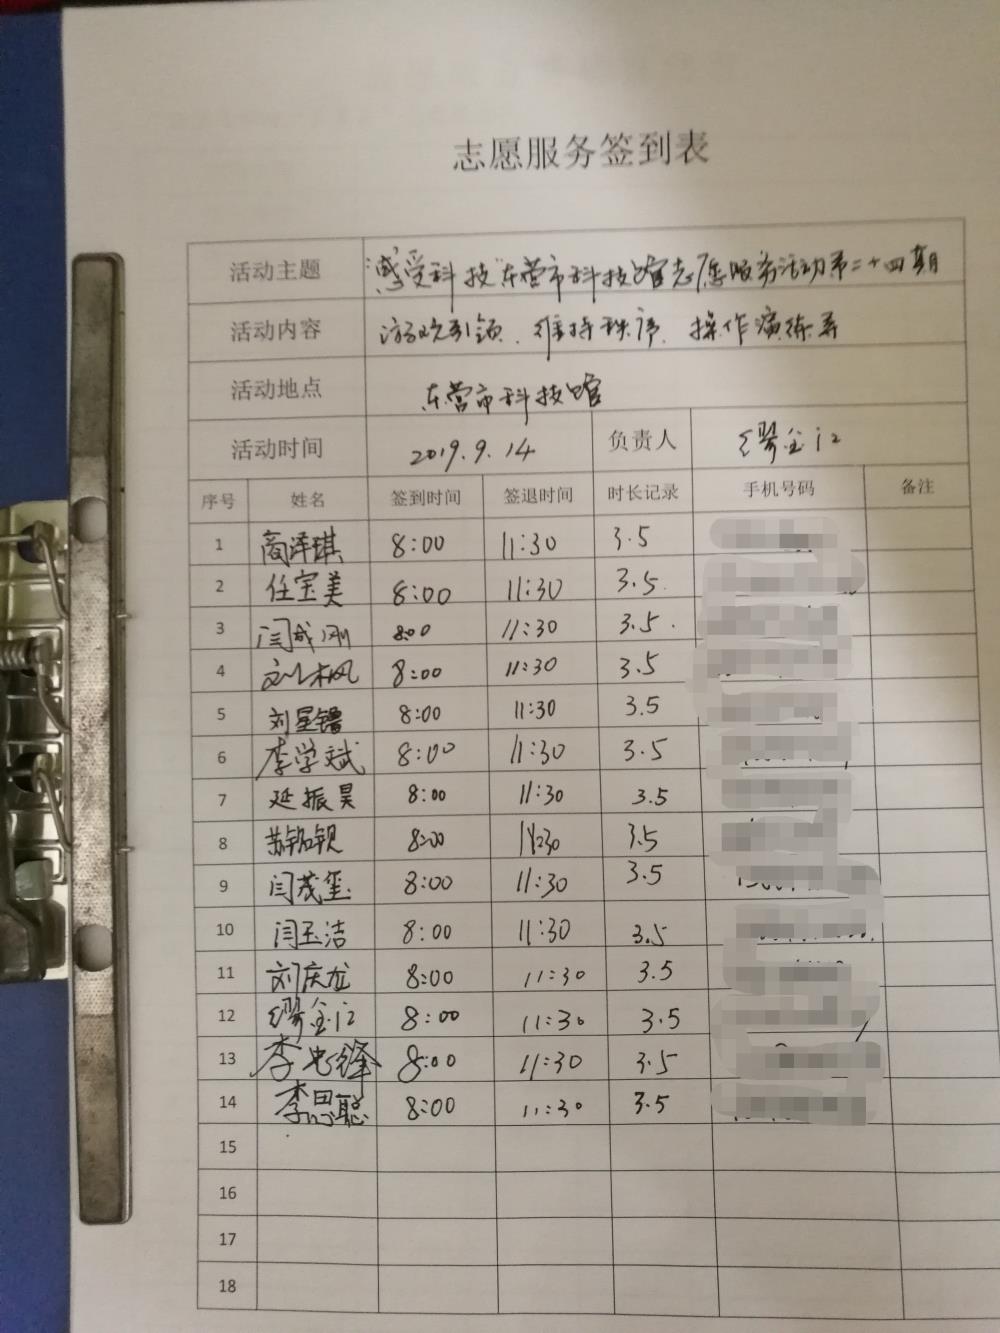 志愿服务签到表
活动主题 "感受科技"东营市科技馆志愿服务活动第二十四期
活动内容 游戏引领、维持秩序、操作演练等
活动地点 东营市科技馆
活动时间 2019.9.14 负责人 缪金江
序号 姓名 签到时间 签退时间 时长记录 手机号码 备注
1 商泽琪 8:00 11:30 3.5
2 任宝美 8:00 11:30 3.5
3 闫成刚 8:00 11:30 3.5
4 刘树枫 8:00 11:30 3.5
5 刘星锴 8:00 11:30 3.5
6 李学斌 8:00 11:30 3.5
7 延振昊 8:00 11:30 3.5
8 8:00 11:30 3.5
9 闫茂玺 8:00 11:30 3.5
10 闫玉洁 8:00 11:30 3.5
11 刘庆龙 8:00 11:30 3.5
12 缪金江 8:00 11:30 3.5
13 李忠锋 8:00 11:30 3.5
14 李思聪 8:00 11:30 3.5
15
16
17
18